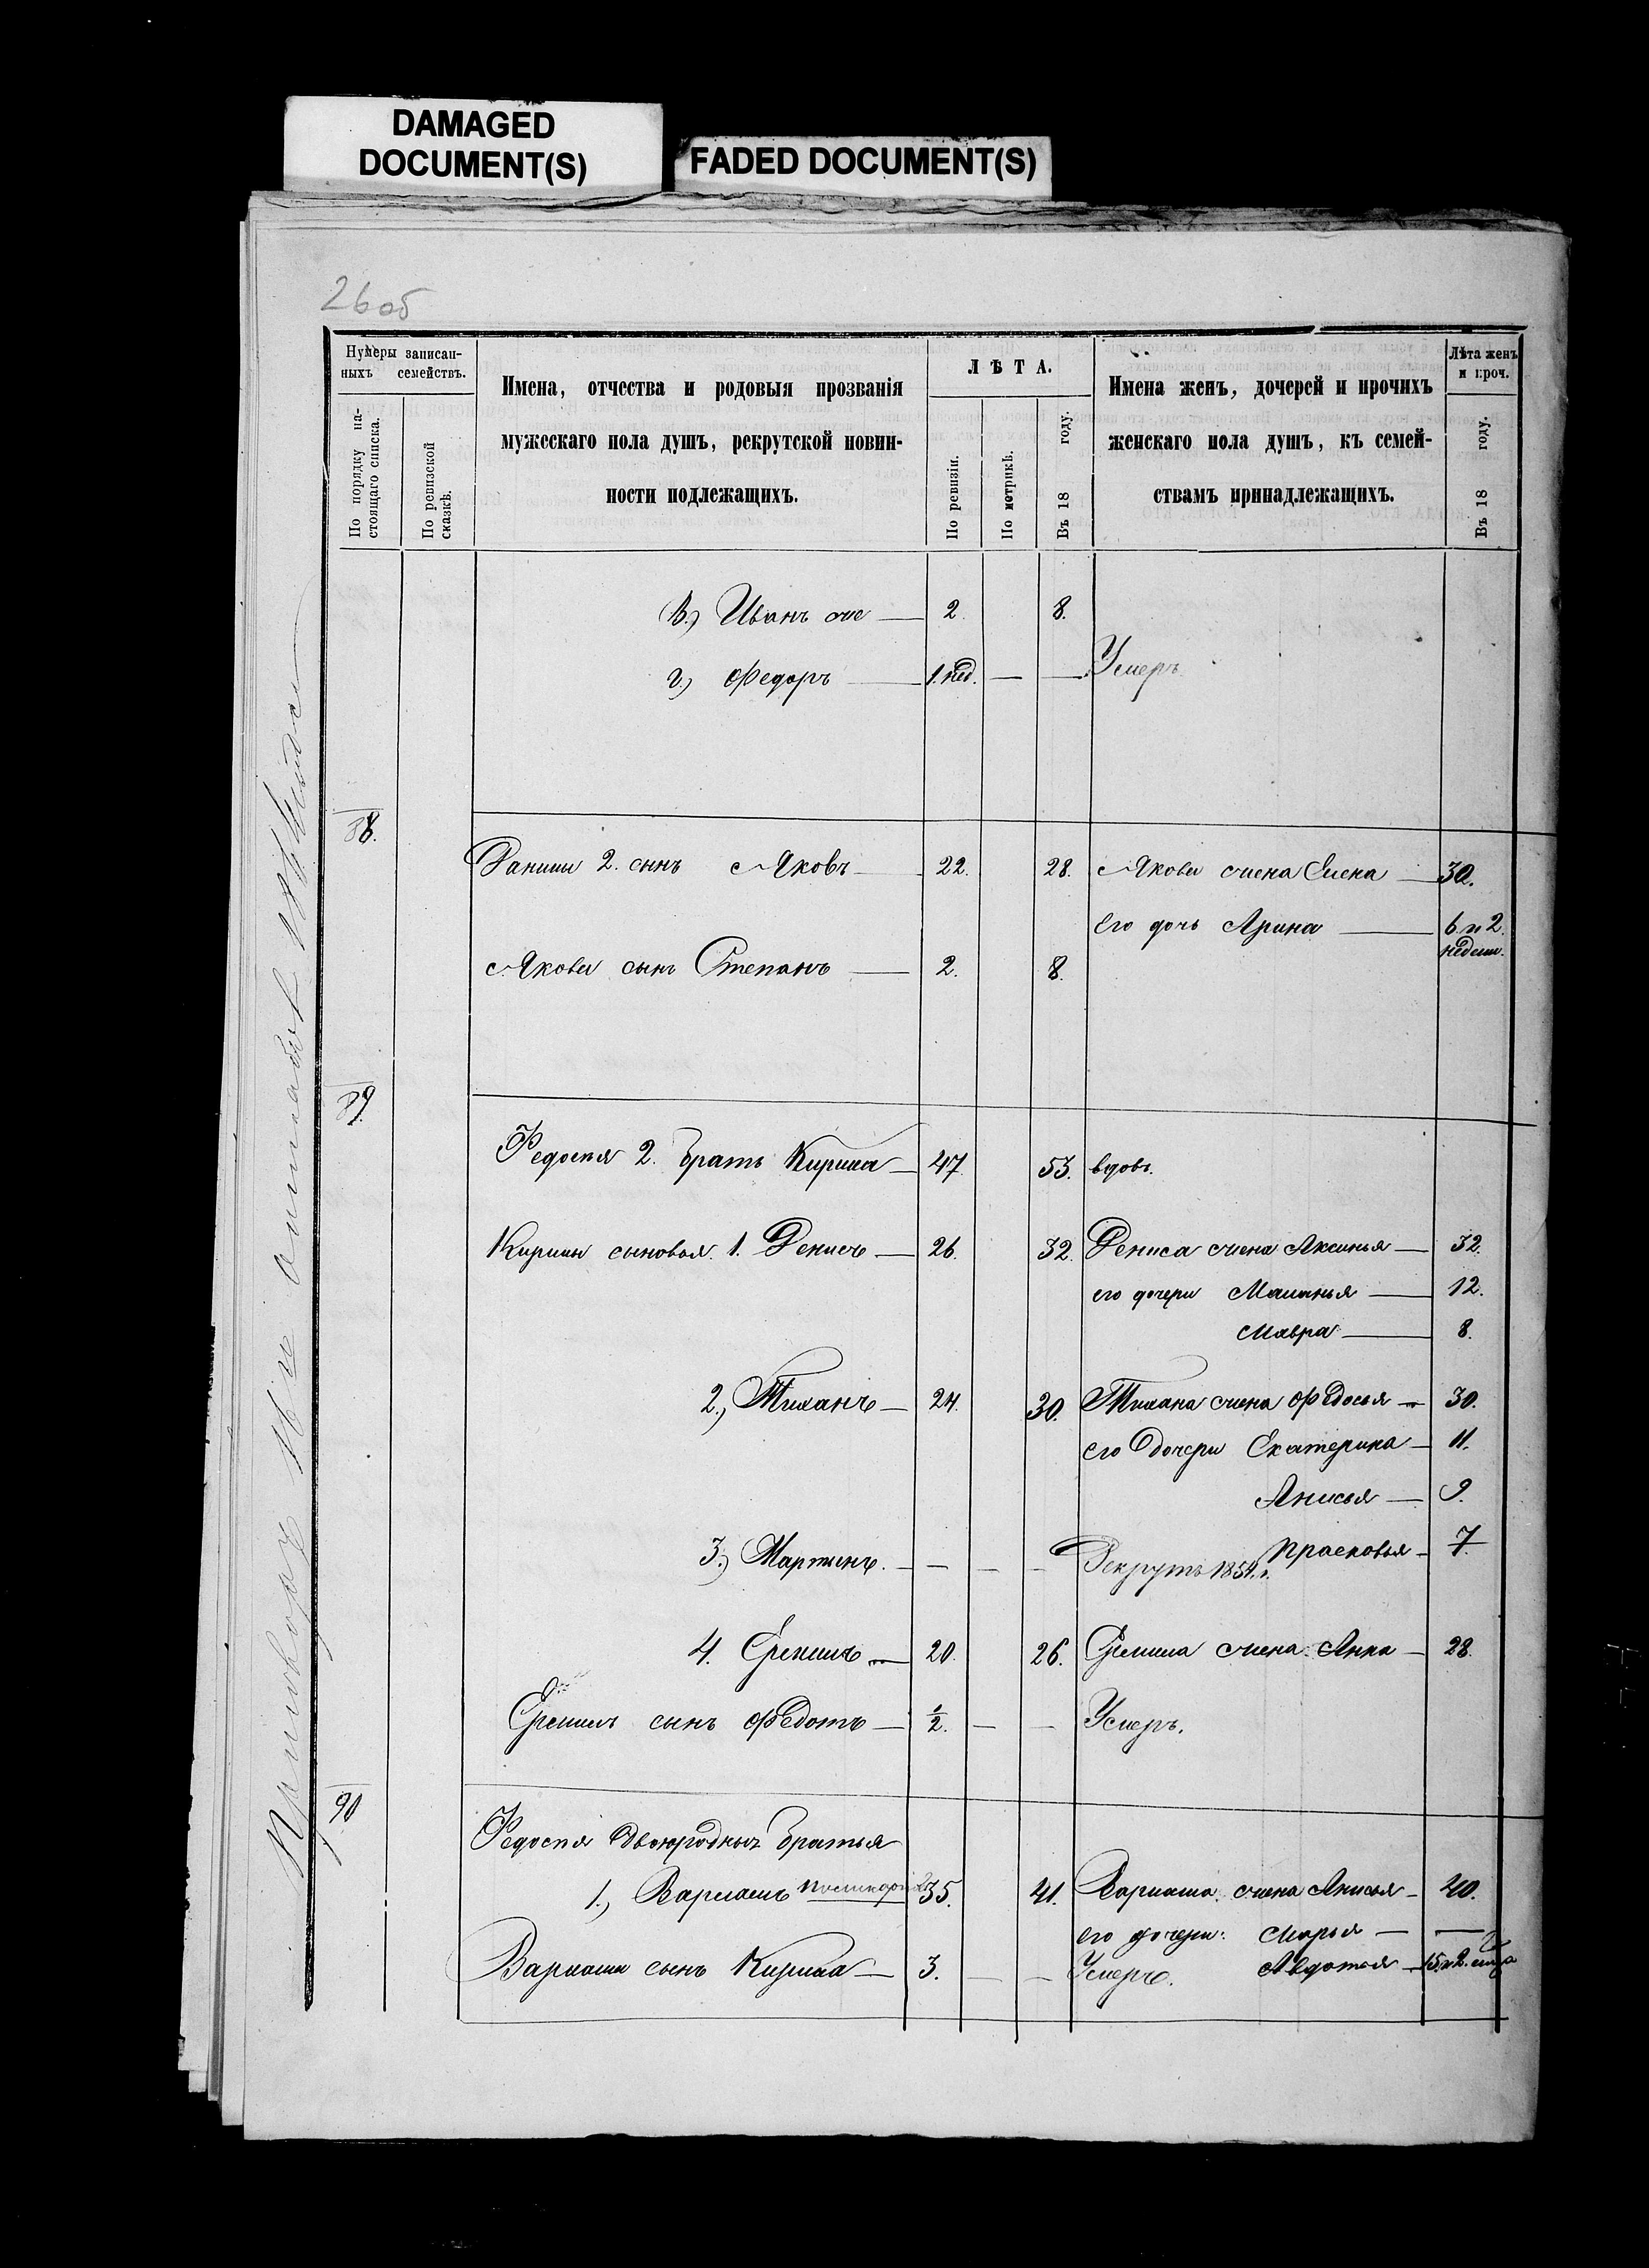 DAMAGED
DOCUMENT(S)
FADED DOCUMENT(S)
26 об
Нумеры записан-
ныхъ семействъ.
По порядку на-
стоящаго списка.
По ревизской
сказкѣ.
Имена, отчества и родовыя прозванія
мужескаго пола душъ, рекрутской повин-
ности подлежащихъ.
ЛѢТА.
По ревизіи.
По метрикѣ.
Въ 18 году.
Имена женъ, дочерей и прочихъ
женскаго пола душъ, къ семей-
ствамъ принадлежащихъ.
Лѣта женъ
и проч.
Въ 18 году.
в.) Иванъ — 2. 8.
г.) Федоръ — 1. нед. — — Умеръ
88.
Данилы 2. сынъ Яковъ — 22. 28. Якова жена Елена — 30.
Его дочь Арина — 6. и 2.
недели.
Якова сынъ Степанъ — 2. 8.
89.
Федосѣя 2. братъ Кирила — 47. 53. вдовъ.
Кирилы сыновья. 1. Денисъ — 26. 32. Дениса жена Аксинья — 32.
его дочери Маланья — 12.
Мавра — 8.
2.) Тиханъ — 24. 30. Тихана жена Федосья — 30.
его дочери Екатерина — 11.
Анисья — 9.
Прасковья — 7.
3.) Мартинъ. — — — Рекрутъ 1854. г.
4. Еремилъ — 20. 26. Еремила жена Анна — 28.
Еремила сынъ Федотъ — 1/2. — — Умеръ.
90
Федосѣя двоюродные братья
1.) Варламъ 35. 41. Варлама жена Анисья — 40.
его дочери: Марья — —
Авдотья — 15. и 2.
Варлама сынъ Кирила — 3. — — Умеръ.